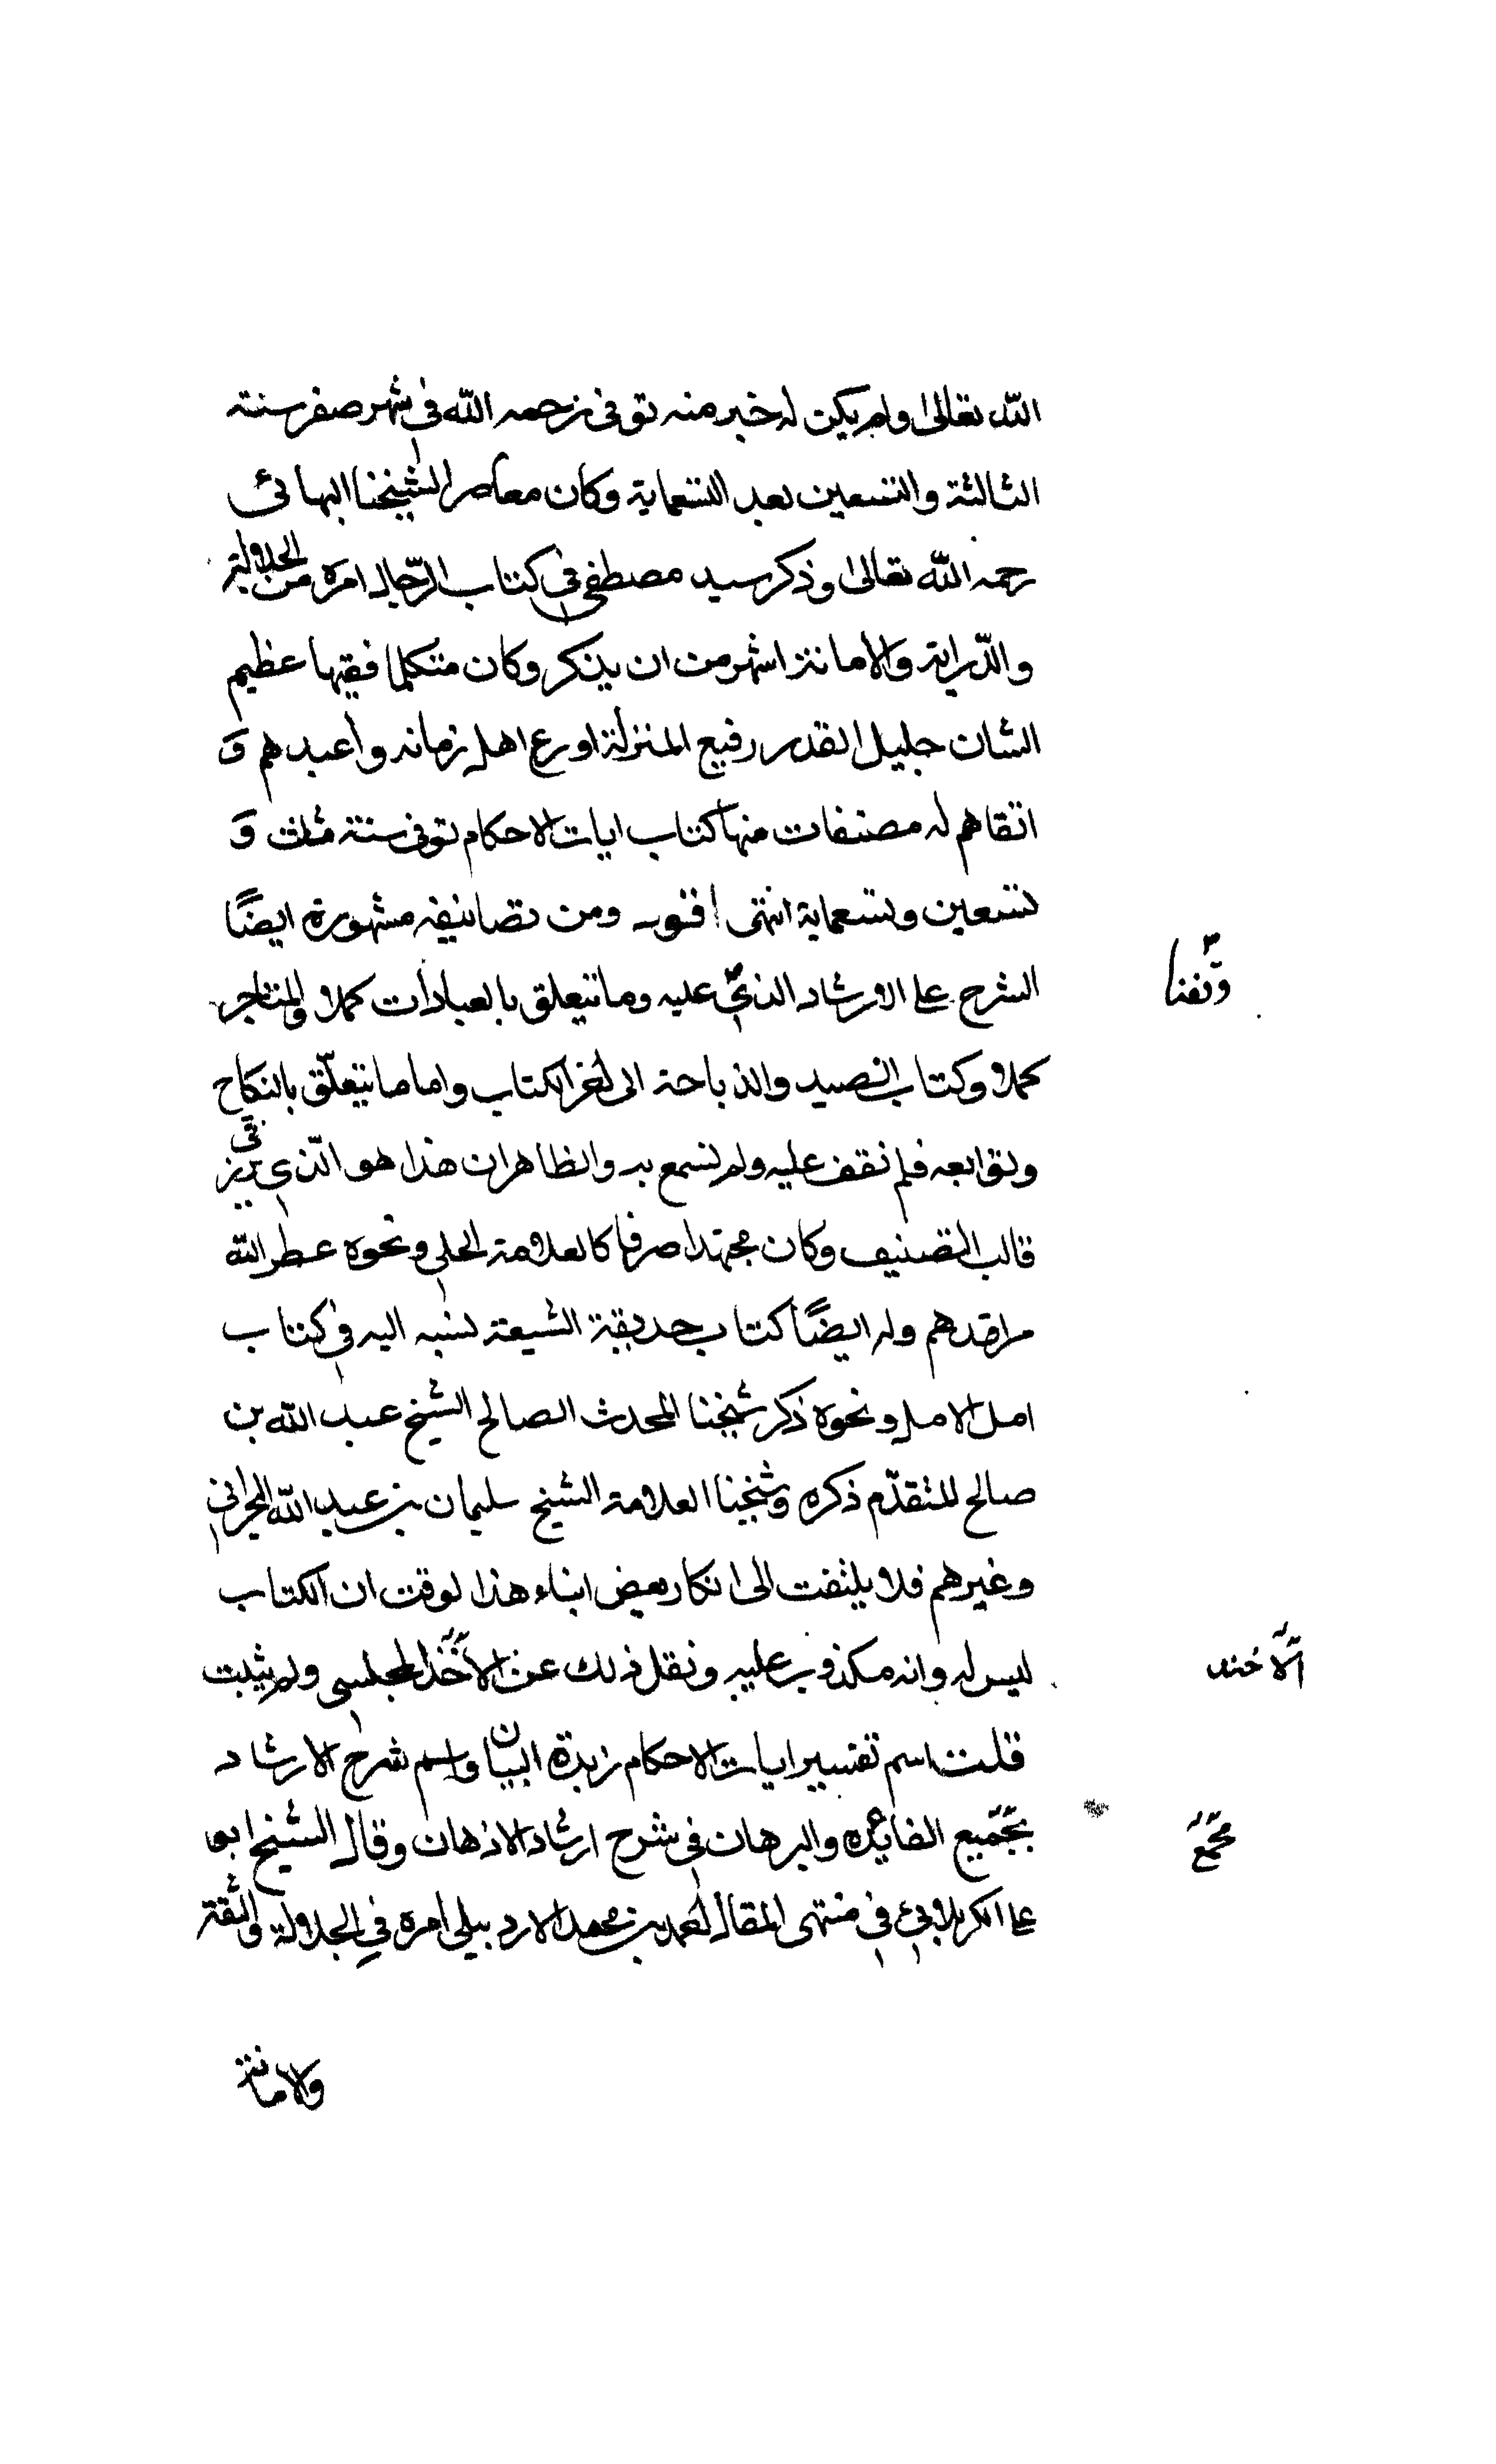 الله تعالى ولم يكن له خبر منه توفى رحمه الله فى شهر صفر سنة
الثالثة والتسعين بعد التسعماية وكان معاصرا لشيخنا البهائى
رحمه الله تعالى وذكر سيد مصطفى فى كتاب الرّجال امره من الجلالة
والدّراية والامانة اشهر من ان يذكر وكان متكلما فقيها عظيم
الشان جليل القدر رفيع المنزلة اورع اهل زمانه واعبدهم و
اتقاهم له مصنفات منها كتاب ايات الاحكام توفى سنة ثلث و
تسعين وتسعماية انتهى اقول ومن تصانيفه مشهورة ايضًا
الشرح على الارشاد الذى عليه وما تتعلق بالعبادات كملا والمتاجر
وقفنا
كملا وكتاب الصيد والذباحة الى اخر الكتاب واما ما يتعلّق بالنكاح
وتوابعه فلم نقف عليه ولم نسمع به والظاهر ان هذا هو الّذى برز فى
قالب التصنيف وكان مجتهدا صرفا كالعلامة الحلى ونحوه عطر الله
مراقدهم وله ايضًا كتاب حديقة الشيعة نسبه اليه فى كتاب
امل الامل ونحوه ذكر شيخنا المحدث الصالح الشيخ عبد الله بن
صالح المتقدّم ذكره وشيخنا العلامة الشيخ سليمان بن عبد الله البحرانى
وغيرهم فلا يلتفت الى انكار بعض ابناء هذا لوقت ان الكتاب
ليس له وانه مكذوب عليه ونقل ذلك عن الآخند المجلسى ولم يثبت
الآخند
قلت اسم تفسير ايات الاحكام زبدة البيان واسم شرح الارشاد
بجميع الفائده والبرهان فى شرح ارشاد الاذهان وقال الشيخ ابو
مجمع
على الكربلايئ فى منتهى المقال احمد بن محمد الاردبيلى امره فى الجلالة والثقة
والامانة